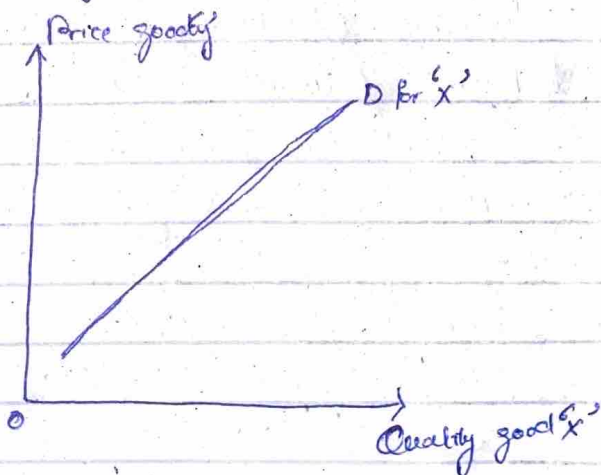 Price good‘y’
D for ‘X’
O
Quality good ‘x’